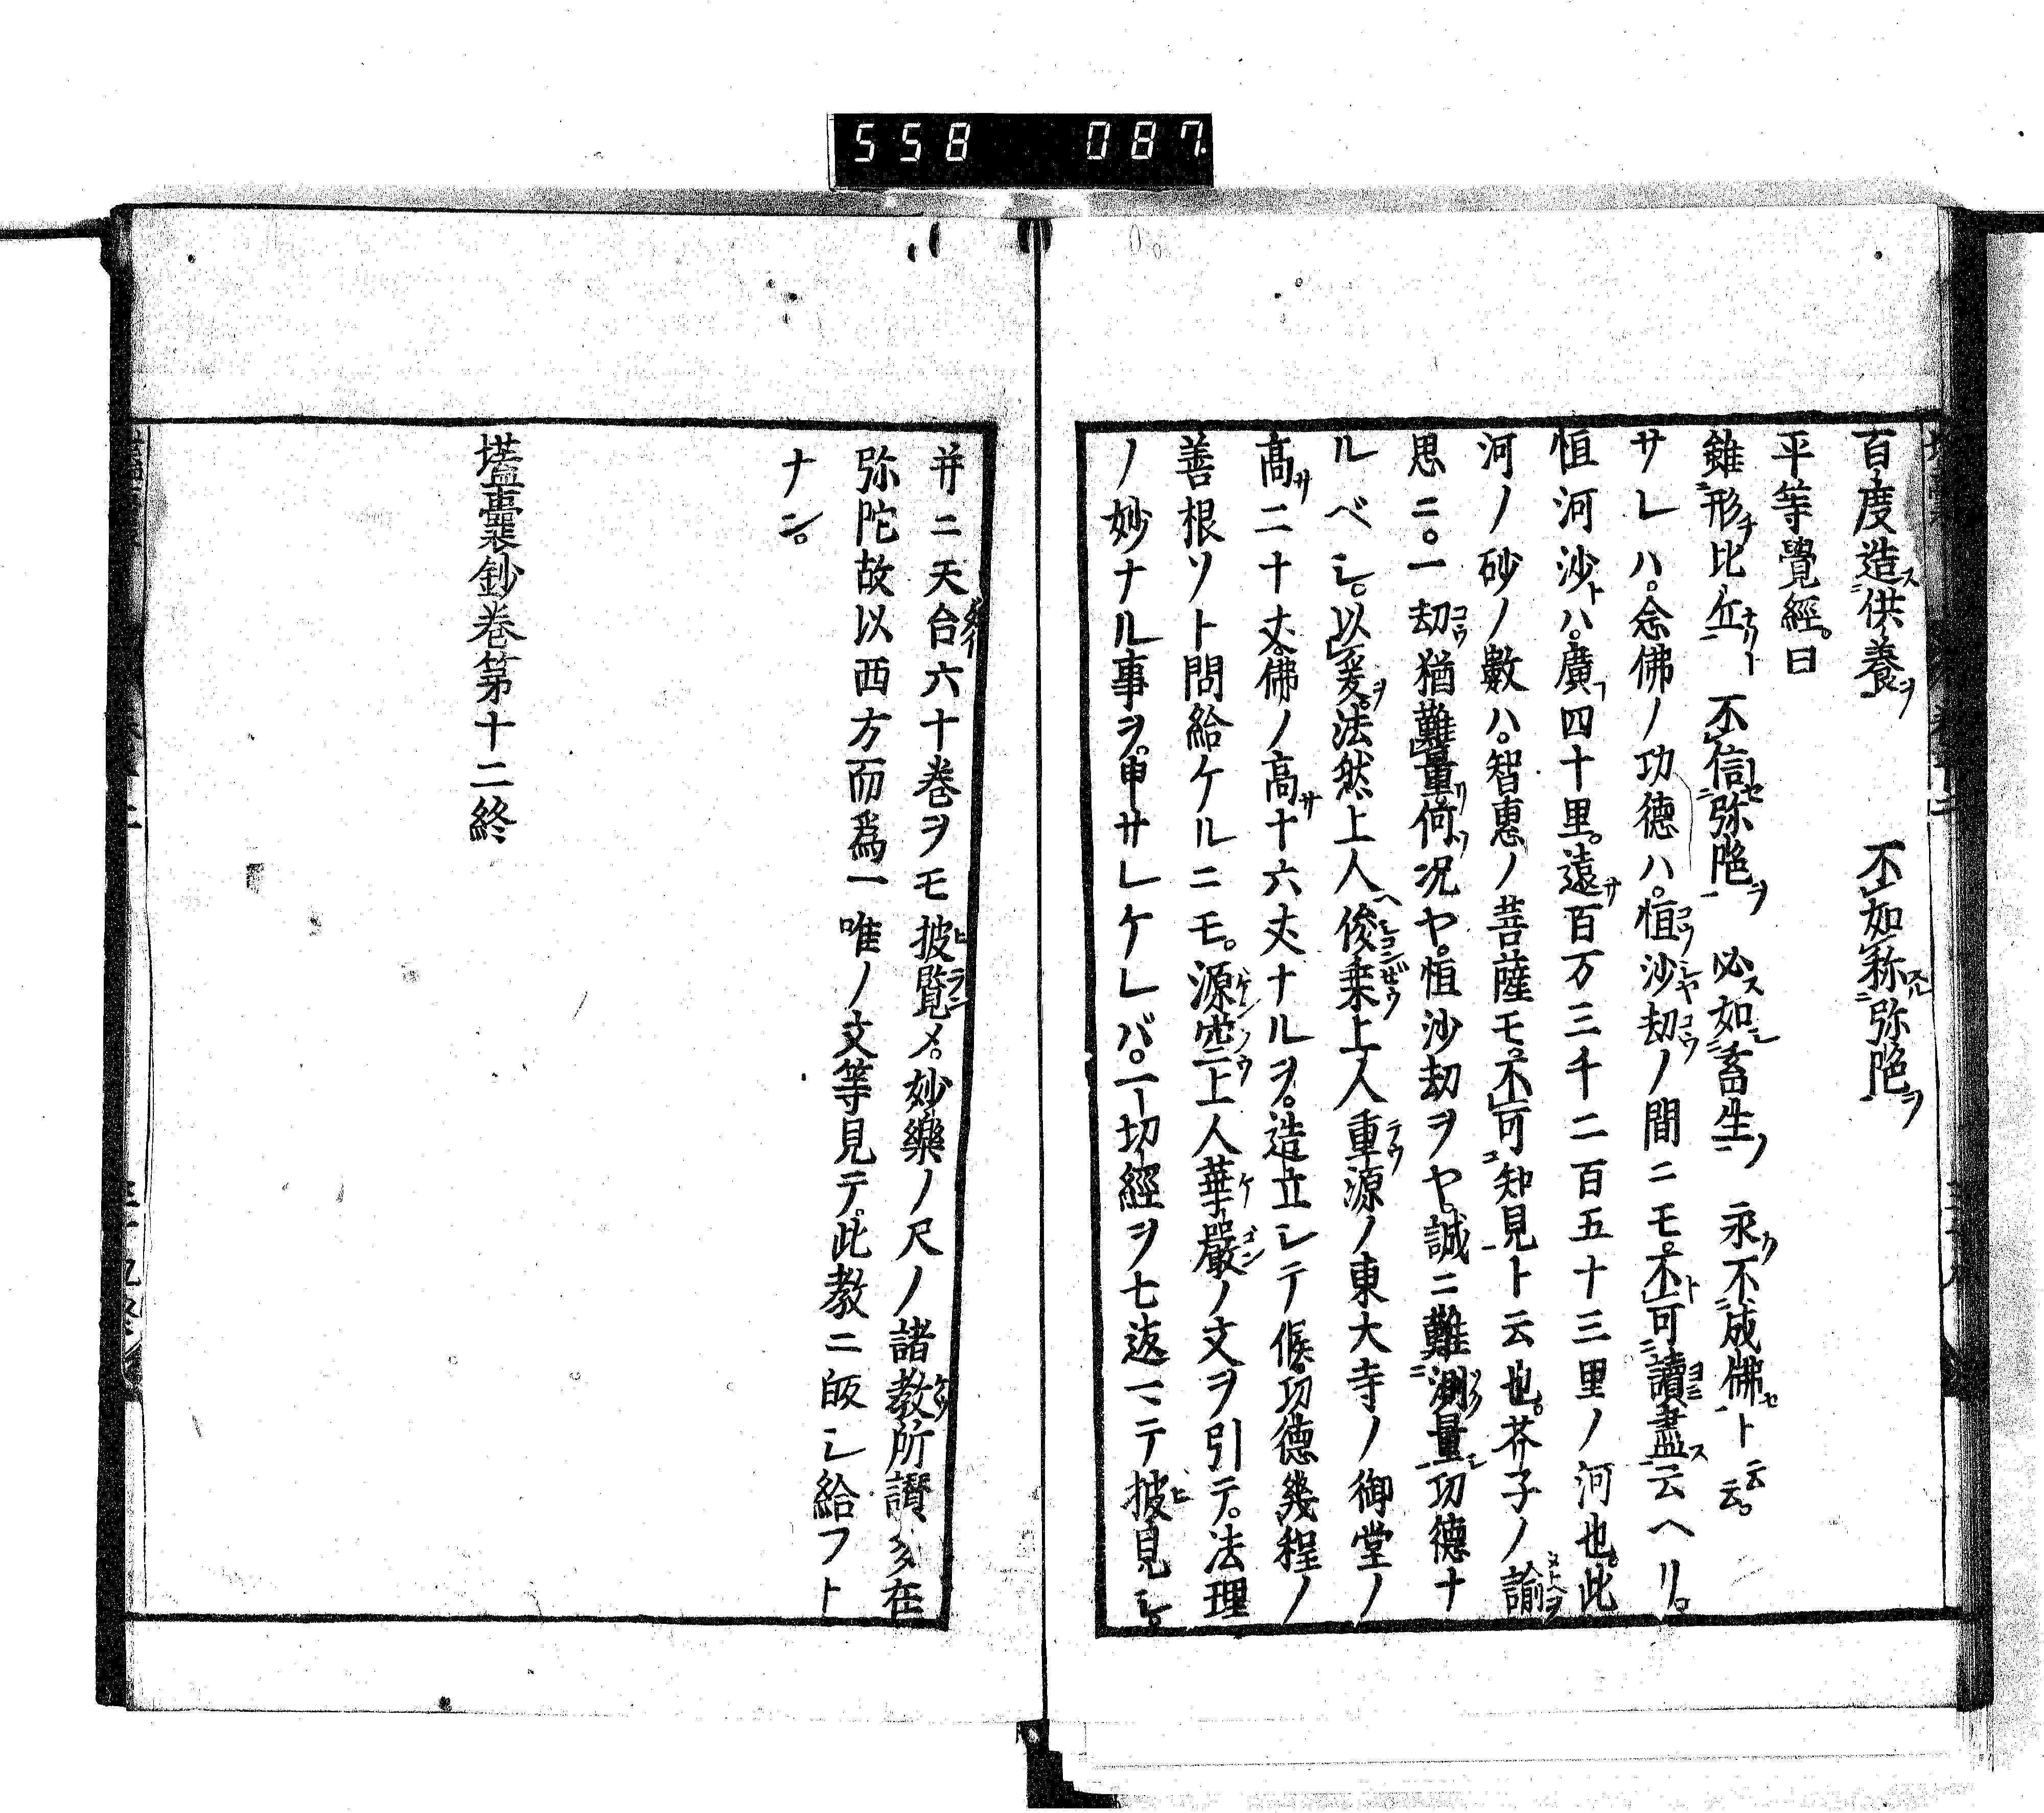 558 087
百度造供養ヲ 不如称弥陁ヲ
平等覺經。曰
雖形チ比丘ナリト 不信弥陁ヲ 必ス如シ畜生ノ 永ク不成佛セト云云。
サレハ。念佛ノ功徳ハ。恒沙劫ノ間ニモ。不可讀盡ス云ヘリ。
恒河沙トハ。廣四十里。遠サ百万三千二百五十三里ノ河也。此
河ノ砂ノ數ハ。智惠ノ菩薩モ。不可知見ト云也。芥子ノ諭
思ニ。一劫猶難量リ。何况ヤ。恒沙劫ヲヤ。誠ニ難測量シ功徳ナ
ルベシ。以爰ヲ。法然上人ヘ俊乗上人重源ノ東大寺ノ御堂ノ
髙サ二十丈。佛ノ高サ十六丈ナルヲ。造立シテ候。功徳幾程ノ
善根ソト問給ケルニモ。源空上人華嚴ノ文ヲ引テ。法理
ノ妙ナル事ヲ。申サレケレバ。一切經ヲ七返マテ披見シ。
并ニ天台六十巻ヲモ披覧メ。妙樂ノ尺ノ諸教所讃多在
弥陀故以西方而爲一唯ノ文等見テ。此教ニ皈シ給フト
ナン。
壒囊鈔巻第十二終